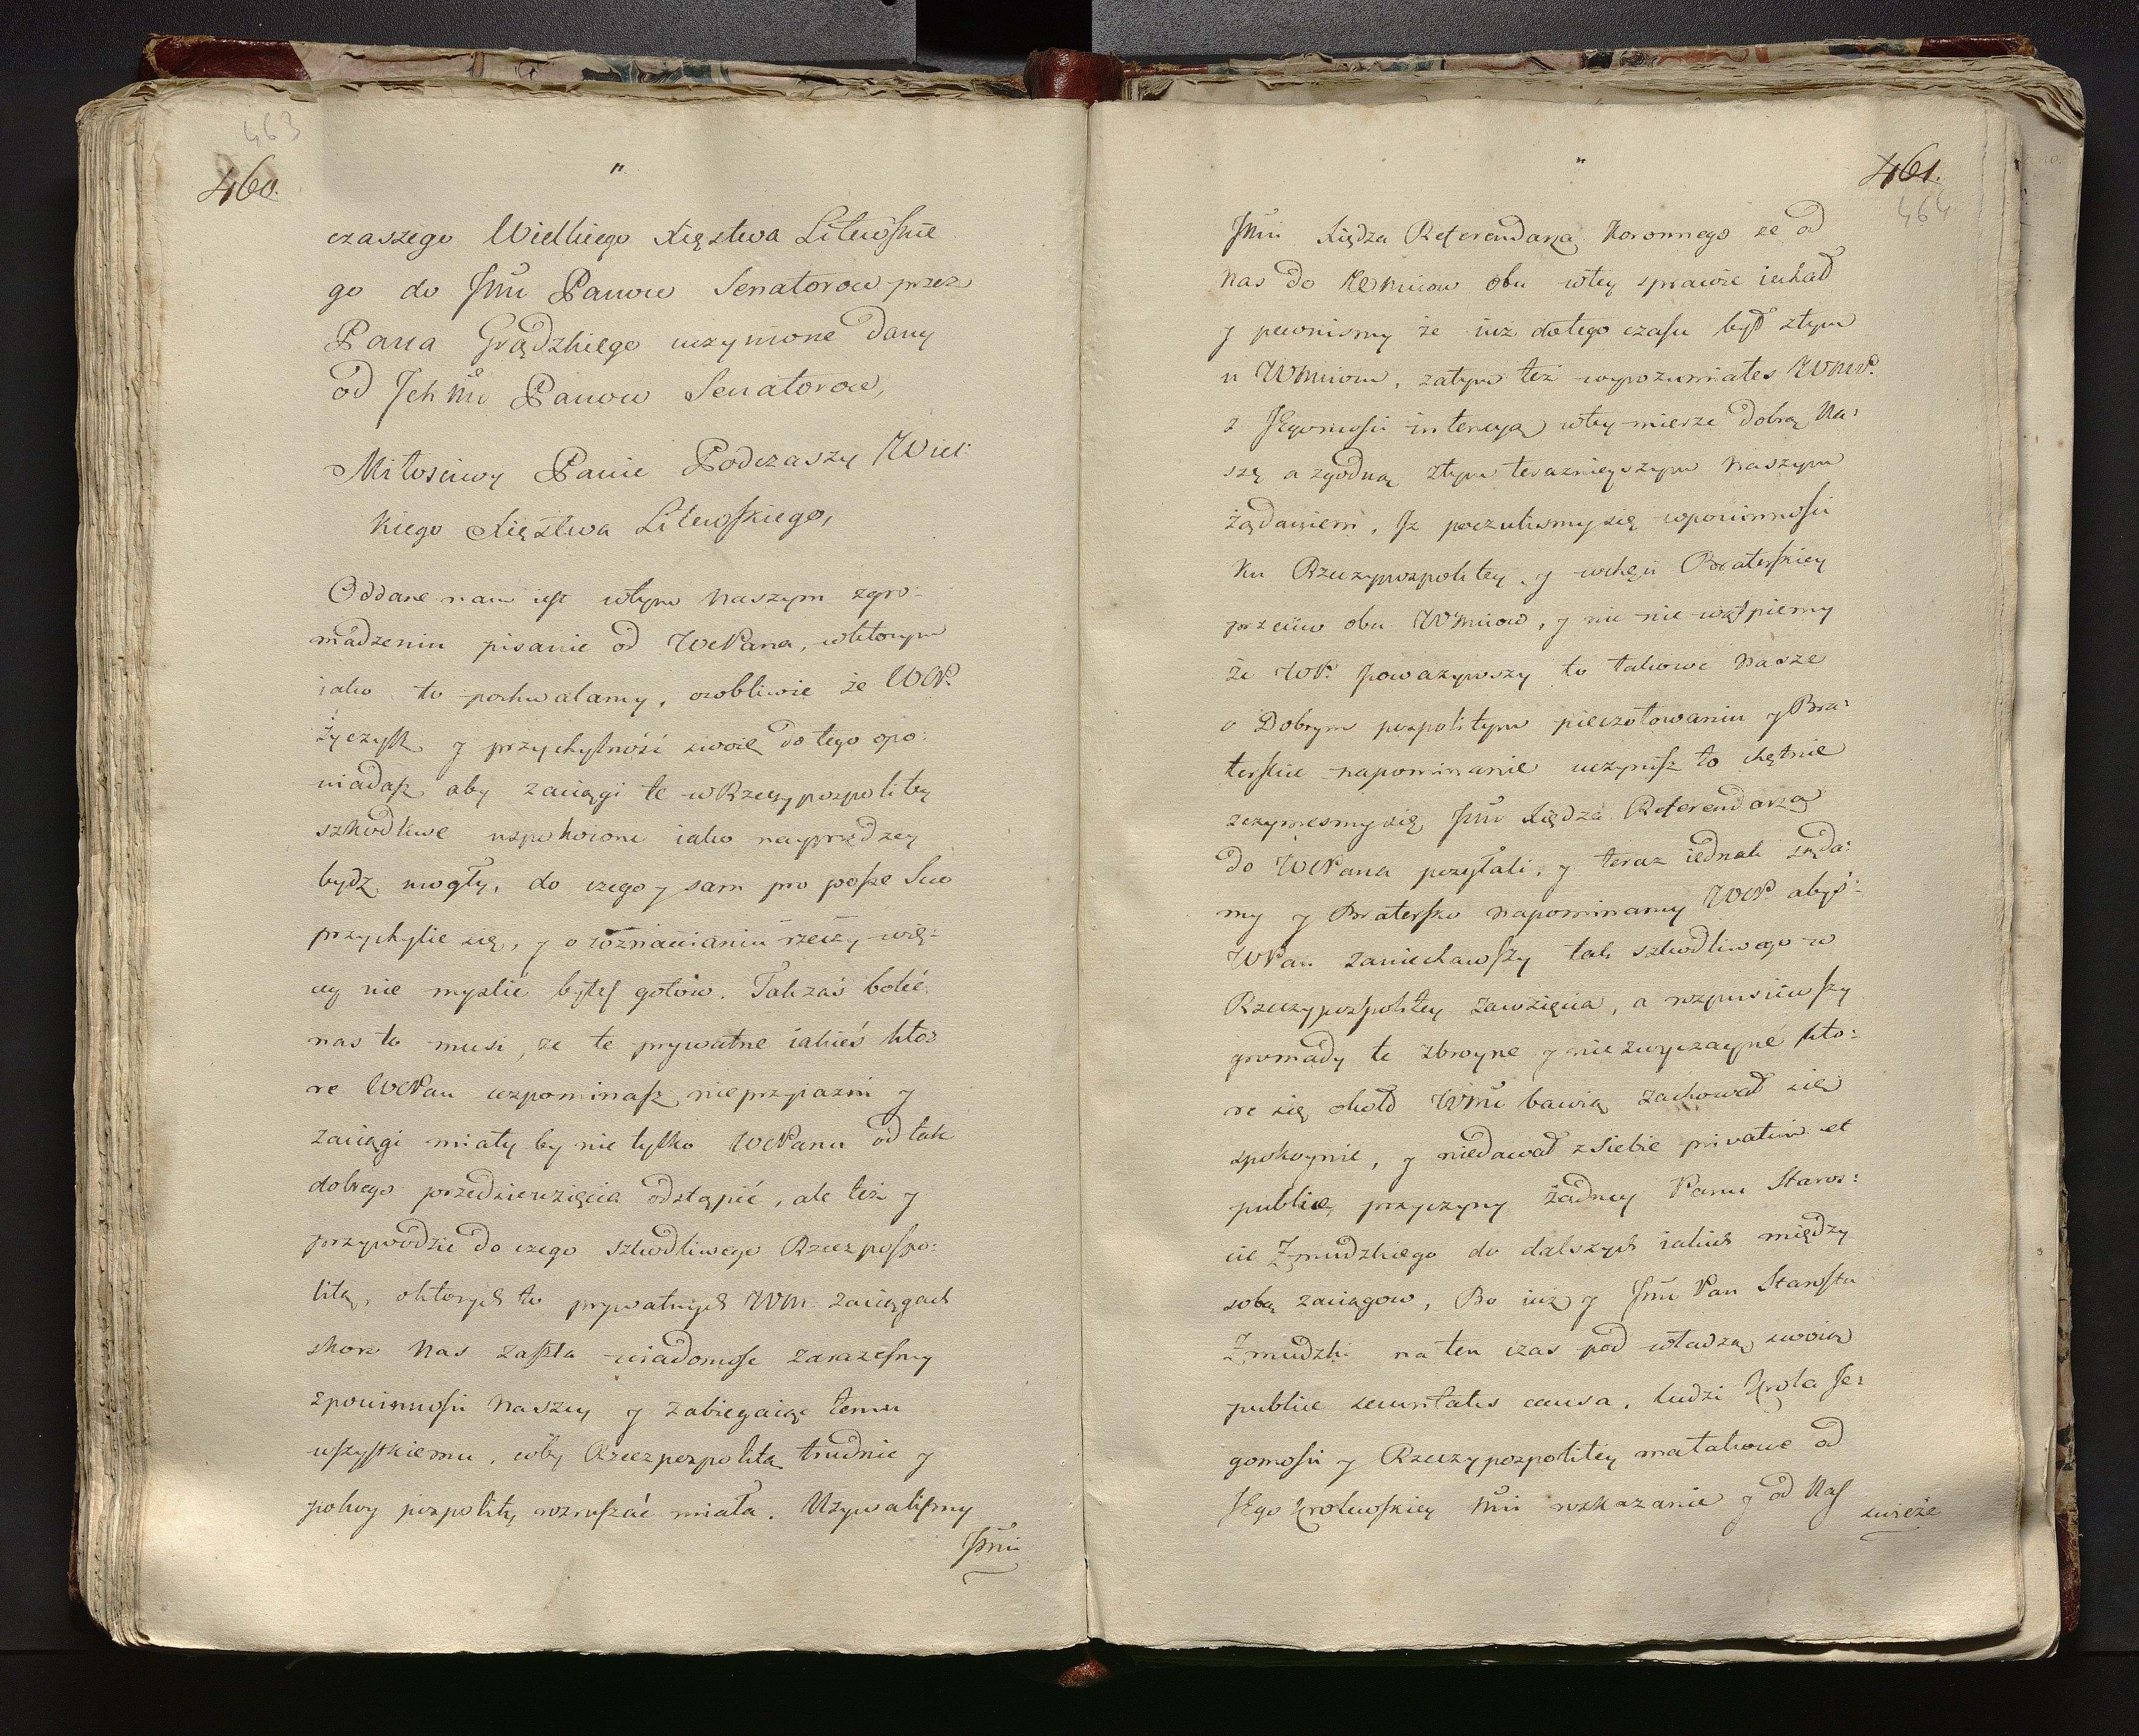 463
460.
"
czaszego Wielkiego Xięstwa Litewskie
go do Jmći Panow Senatorow przez
Pana Grądzkiego uczynione dany
od Ich Mć Panow Senatorow,
Miłosciwy Panie Podczaszy Wiel:
kiego Xięstwa Litewskiego,
Oddane nam iest wtym naszym zgro-
madzeniu pisanie od WcPana, wktorym
iako to pochwalamy, osobliwie że WP.
życzysz y przychylność swoię do tego opo:
wiadasz aby zaciągi te wRzeczypospolitey
szkodliwe uspokoione iako nayprędzey
bydz mogły, do czego y sam pro posse Suo
przychylic się, y o roznawianiu rzeczy wię-
cey nie myslic byłeś gotow. Tak zaś boleć
nas to musi, ze te prywatne iakieś kto:
re WcPan wspominasz nieprzyiazni y
zaciągi miały by nie tylko WcPana od tak
dobrego przedsiewzięcia odstąpić, ale też y
przywodzic do czego szkodliwego Rzeczpospo:
litą, oktorych to prywatnych WM. zaciągach
skoro Nas zaszła wiadomosc zarazesmy
zpowinnosci Naszey y zabiegaiąc temu
wszystkiemu, coby Rzeczpospolitą trudnic y
pokoy pospolity rozruszać miała. Używalismy
Jmći
"
461.
464
Jmći Xiędza Referendarza Koronnego ze od
Nas do WMciow obu wtey sprawie iechał
y pewnismy że iuż dotego czasu był ztym
u WMciow, zatym też wyrozumiałes WMP.
z JEgomosci intencyą wtey mierze dobrą Na:
szę a zgodną ztym teraznieyszym Naszym
żądaniem, Iz poczulismy się wpowinnosci
ku Rzeczypospolitey, y wchęci Braterskiey
przeciw obu WMciow, y nic nie wątpiemy
że WP. powazywszy to takowe Nasze
o Dobrym pospolitym pieczołowaniu y Bra:
terskie napominanie uczynisz to chętnie
zczymesmy się Jmći Xiędza Referendarza
do WcPana posyłali, y teraz iednak żąda:
my y Bratersko napominamy WcP. abyś
WPan zaniechawszy tak szkodliwego w
Rzeczypospolitey zawzięcia, a rozpusciwszy
gromady te zbroyne y niezwyczayne kto:
re się około WMci bawią zachował się
spokoynie, y niedawał zSiebie privatim et
publice przyczyny żadney Panu Staros:
cie Zmudzkiego do dalszych iakich między
sobą zaciągow, Bo iuz y Jmć Pan Starosta
Zmudzki na ten czas pod władzą swoią
publice securitatis causa, Ludzi Krola Je:
gomosci y Rzeczypospolitey matakowe od
JEgo Krolewskiey Mci rozkazanie y od Nas
swieże